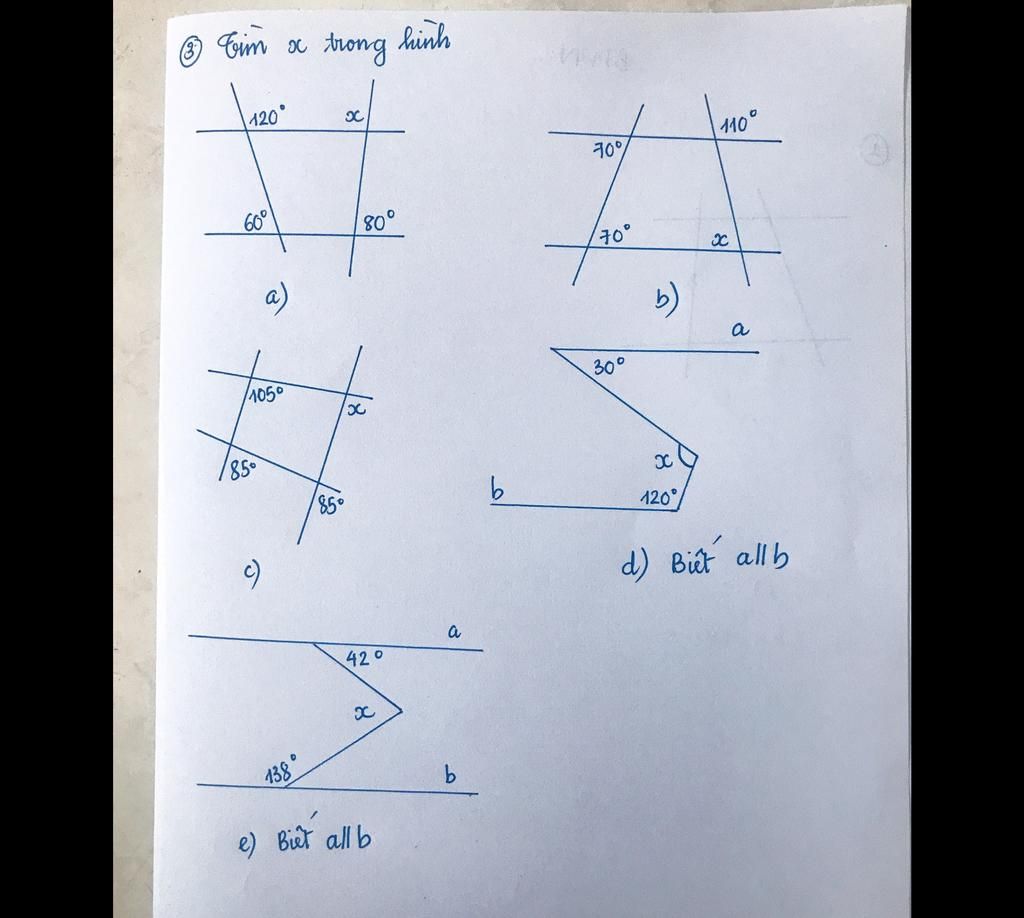 ③ Tìm x trong hình
120° x
60° 80°
a)
110°
70°
70° x
b)
105° x
85°
85°
c)
a
30°
x
b 120°
d) Biết a//b
a
42°
x
138° b
e) Biết a//b